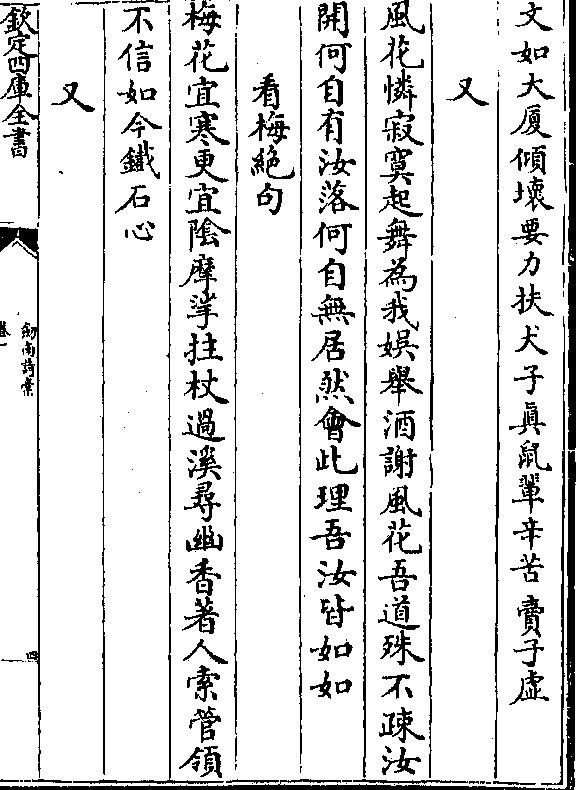 文如大厦傾壞要力扶犬子真鼠輩辛苦賣子虛
又
風花憐寂寞起舞為我娯舉酒謝風花吾道殊不疎汝
開何自有汝落何自無居然會此理吾汝皆如如
看梅絶句
梅花宜寒更宜隂摩挲拄杖過溪尋幽香著人索管領
不信如今鐵石心
又
欽定四庫全書
劒南詩稾
卷一
四